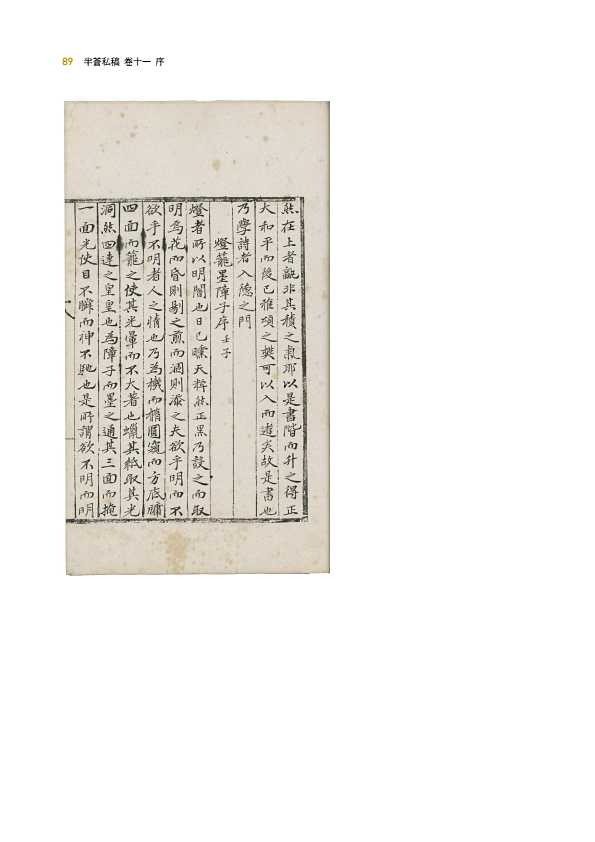 89 半蒼私稿 卷十一 序
然在上者諷非其積之氣那以是書階而升之得正
大和平而後已雅頌之樊可以入而遊矣故是書也
乃學詩者入德之門
燈籠墨障子序 壬子
燈者所以明闇也日已曛天粹然正黑乃設之而取
明爲花而昏則剔之煎而涸則添之夫欲乎明而不
欲乎不明者人之情也乃爲機而楕圓窺而方底牗
四面而籠之使其光暈而不大著也蠟其紙取其光
洞然四達之皇皇也爲障子而墨之通其三面而掩
一面光使目不瞬而神不馳也是所謂欲不明而明